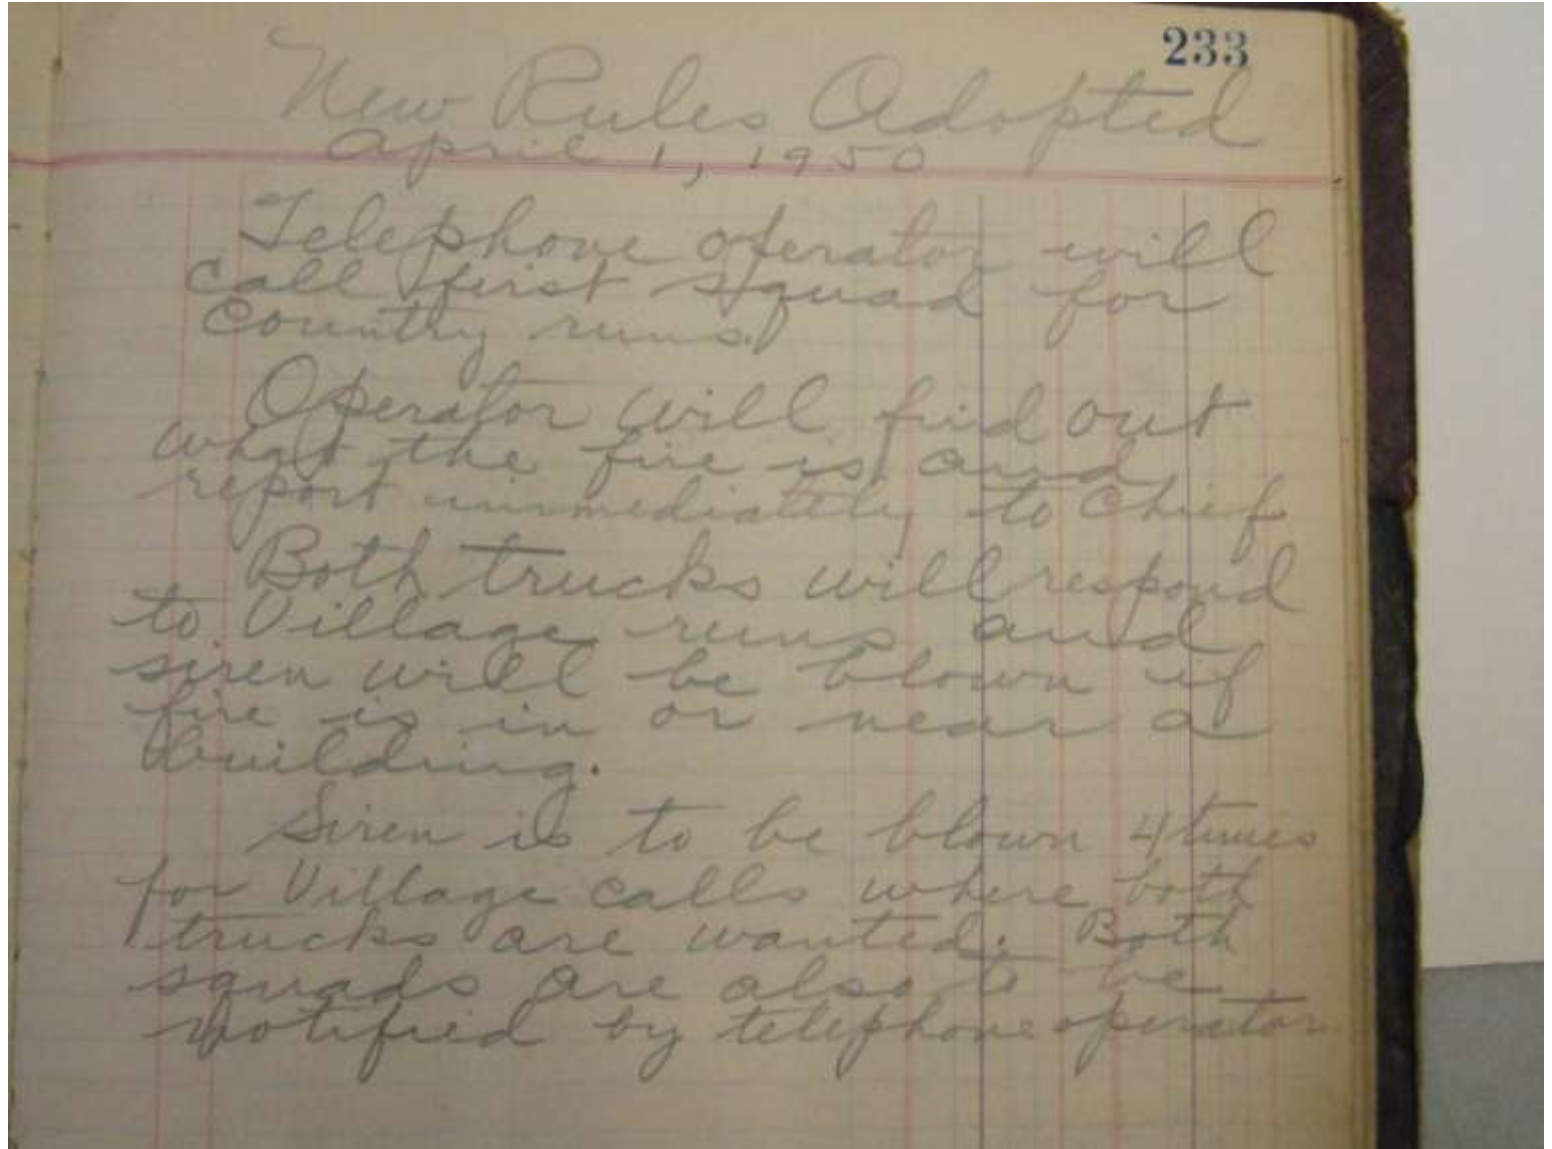 233
New Rules Adopted
April 1, 1950
Telephone operator will
call first squad for
Country runs.
Operator will find out
what the fire is and
report immediately to Chief
Both trucks will respond
to Village runs and
siren will be blown if
fire is in or near a
building.
Siren is to be blown 4 times
for Village calls where both
trucks are wanted. Both
squads are also to be
notified by telephone operator